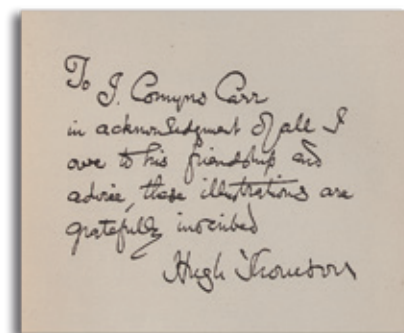 To J. Comyns Carr
in acknowledgment of all I
owe to his friendship and
advice, these illustrations are
gratefully inscribed
Hugh Thomson